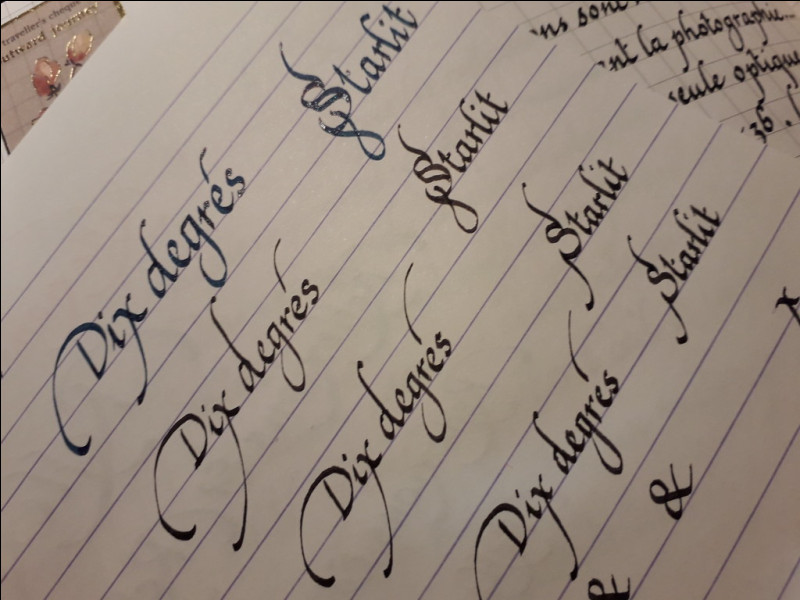 traveller's cheque
outward journey
ns sont
nt la photographie...
seule optique
36
Starlit
Starlit
Starlit
Starlit
Dix degrés
Dix degrés
Dix degrés
Dix degrés
&
&